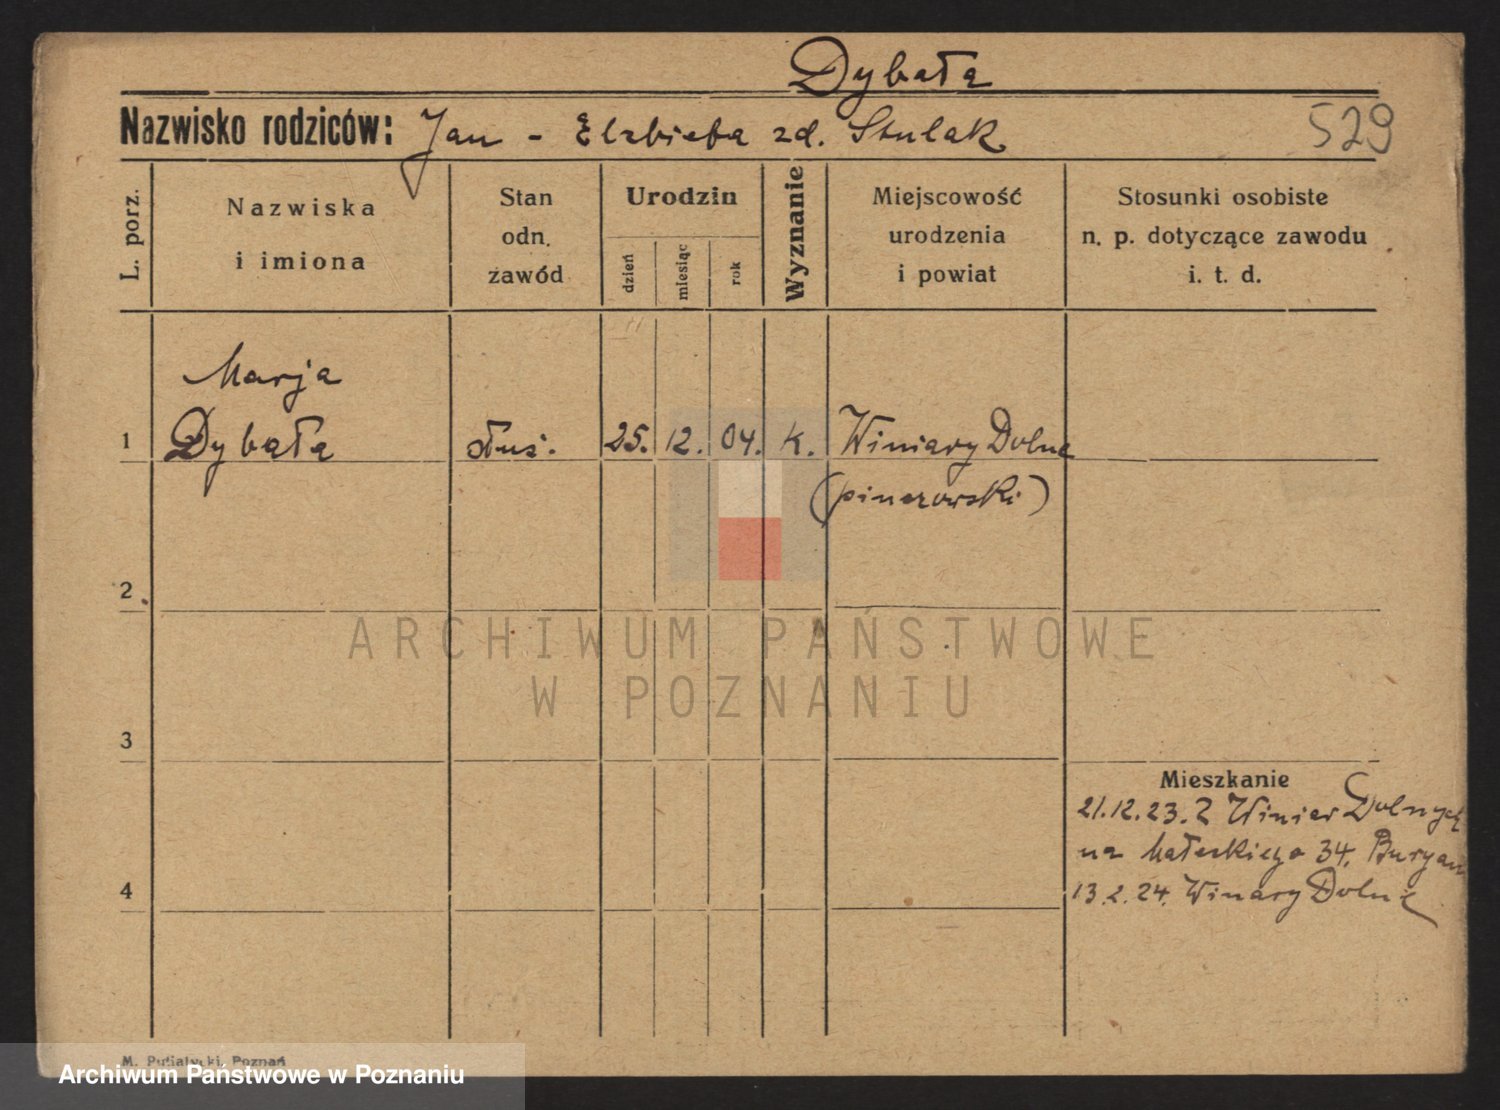 Dybała
Nazwisko rodziców: Jan - Elżbieta zd. Stulak
529
L. porz.
Nazwiska
i imiona
Stan
odn.
zawód
Urodzin
dzień
miesiąc
rok
Wyznanie
Miejscowość
urodzenia
i powiat
Stosunki osobiste
n. p. dotyczące zawodu
i. t. d.
Marja
1 Dybała służ. 25. 12. 04. K. Winiary Dolne
(pinczowski)
2
ARCHIWUM PAŃSTWOWE
W POZNANIU
3
Mieszkanie
21.12.23. Z Winiar Dolnych
na Małeckiego 34. Buryan
4
13.2.24. Winary Dolne
M. Putiatycki, Poznań
Archiwum Państwowe w Poznaniu